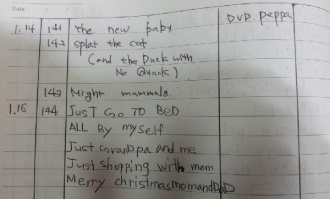 Date
1.14 141 the new baby DVD. peppa
142 splat the cat
(and the Duck with
No Quack)
143 Might mammals.
1.15 144 JusT GO TO BED
ALL By myself
Just Grandpa and me
Just shopping with mom
Merry christmasmomandDaD